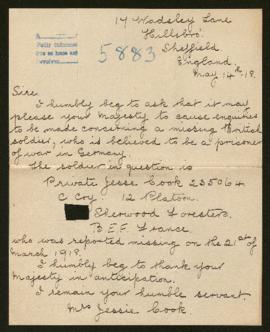 17 Wadsley Lane
Hillsbro'
5883
Sheffield
England.
May 14th 18.
Sire
I humbly beg to ask that it may
please your Majesty to cause enquiries
to be made concerning a missing British
soldier, who is believed to be a prisoner
of war in Germany.
The soldier in question is
Private Jesse Cook 235064
C Coy 12 Platoon.
Sherwood Foresters
B.E.F. France.
who was reported missing on the 21st of
March 1918.
I humbly beg to thank your
Majesty in anticipation.
I remain your humble servant.
Mrs Jessie Cook